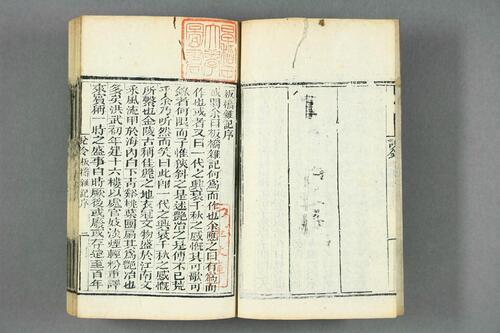 板橋雜記序
或問余曰板橋雜記何爲而作也余應之曰有爲而
作也或者又曰一代之興衰千秋之感慨其可歌可
錄者何限而子惟狹斜之是述艷冶之是傳不已荒
乎余乃听然而笑曰此卽一代之興衰千秋之感慨
所繫也金陵古稱佳麗之地衣冠文物盛於江南文
采風流甲於海內白下青谿桃葉團扇其爲艷冶也
多矣洪武初年建十六樓以處官妓淡煙輕粉重譯
來賓稱一時之盛事自時厥後或廢或存迨至百年
說鈴 板橋雜記序